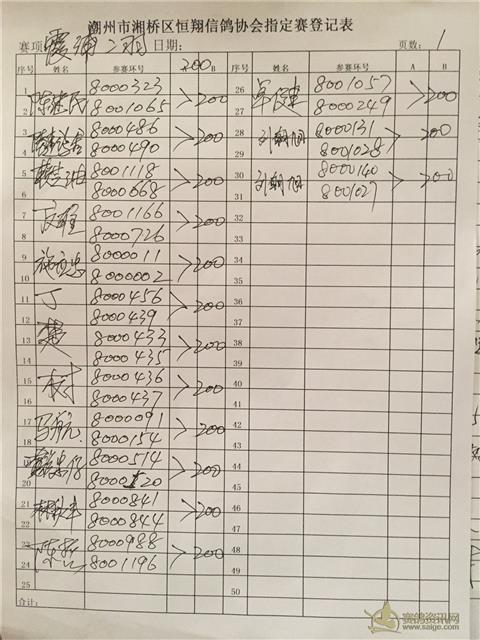 潮州市湘桥区恒翔信鸽协会指定赛登记表
赛项 霞浦二羽 日期: 页数: 1
序号 姓名 参赛环号 200 B 序号 姓名 参赛环号 A B
1 8000323 26 8001057
2 8001065 >200 27 8000249 >200
3 8000486 28 刘朝旭 8000131
4 8000490 >200 29 8001028 > 200
5 8001118 30 刘朝旭 8000140
6 8000668 >200 31 8001027 > 200
7 8001166 32
8 8000726 >200 33
9 8000011 34
10 8000002 >200 35
11 丁 8000456 36
12 8000439 >200 37
13 楚 8000433 38
14 8000435 >200 39
15 树 8000436 40
16 8000437 >200 41
17 马航 8000091 42
18 8000154 >200 43
19 8000514 44
20 8000520 >200 45
21 8000841 46
22 8000844 >200 47
23 8000988 48
24 8001196 >200 49
25 50
合计:
赛鸽资讯网
www.saige.com